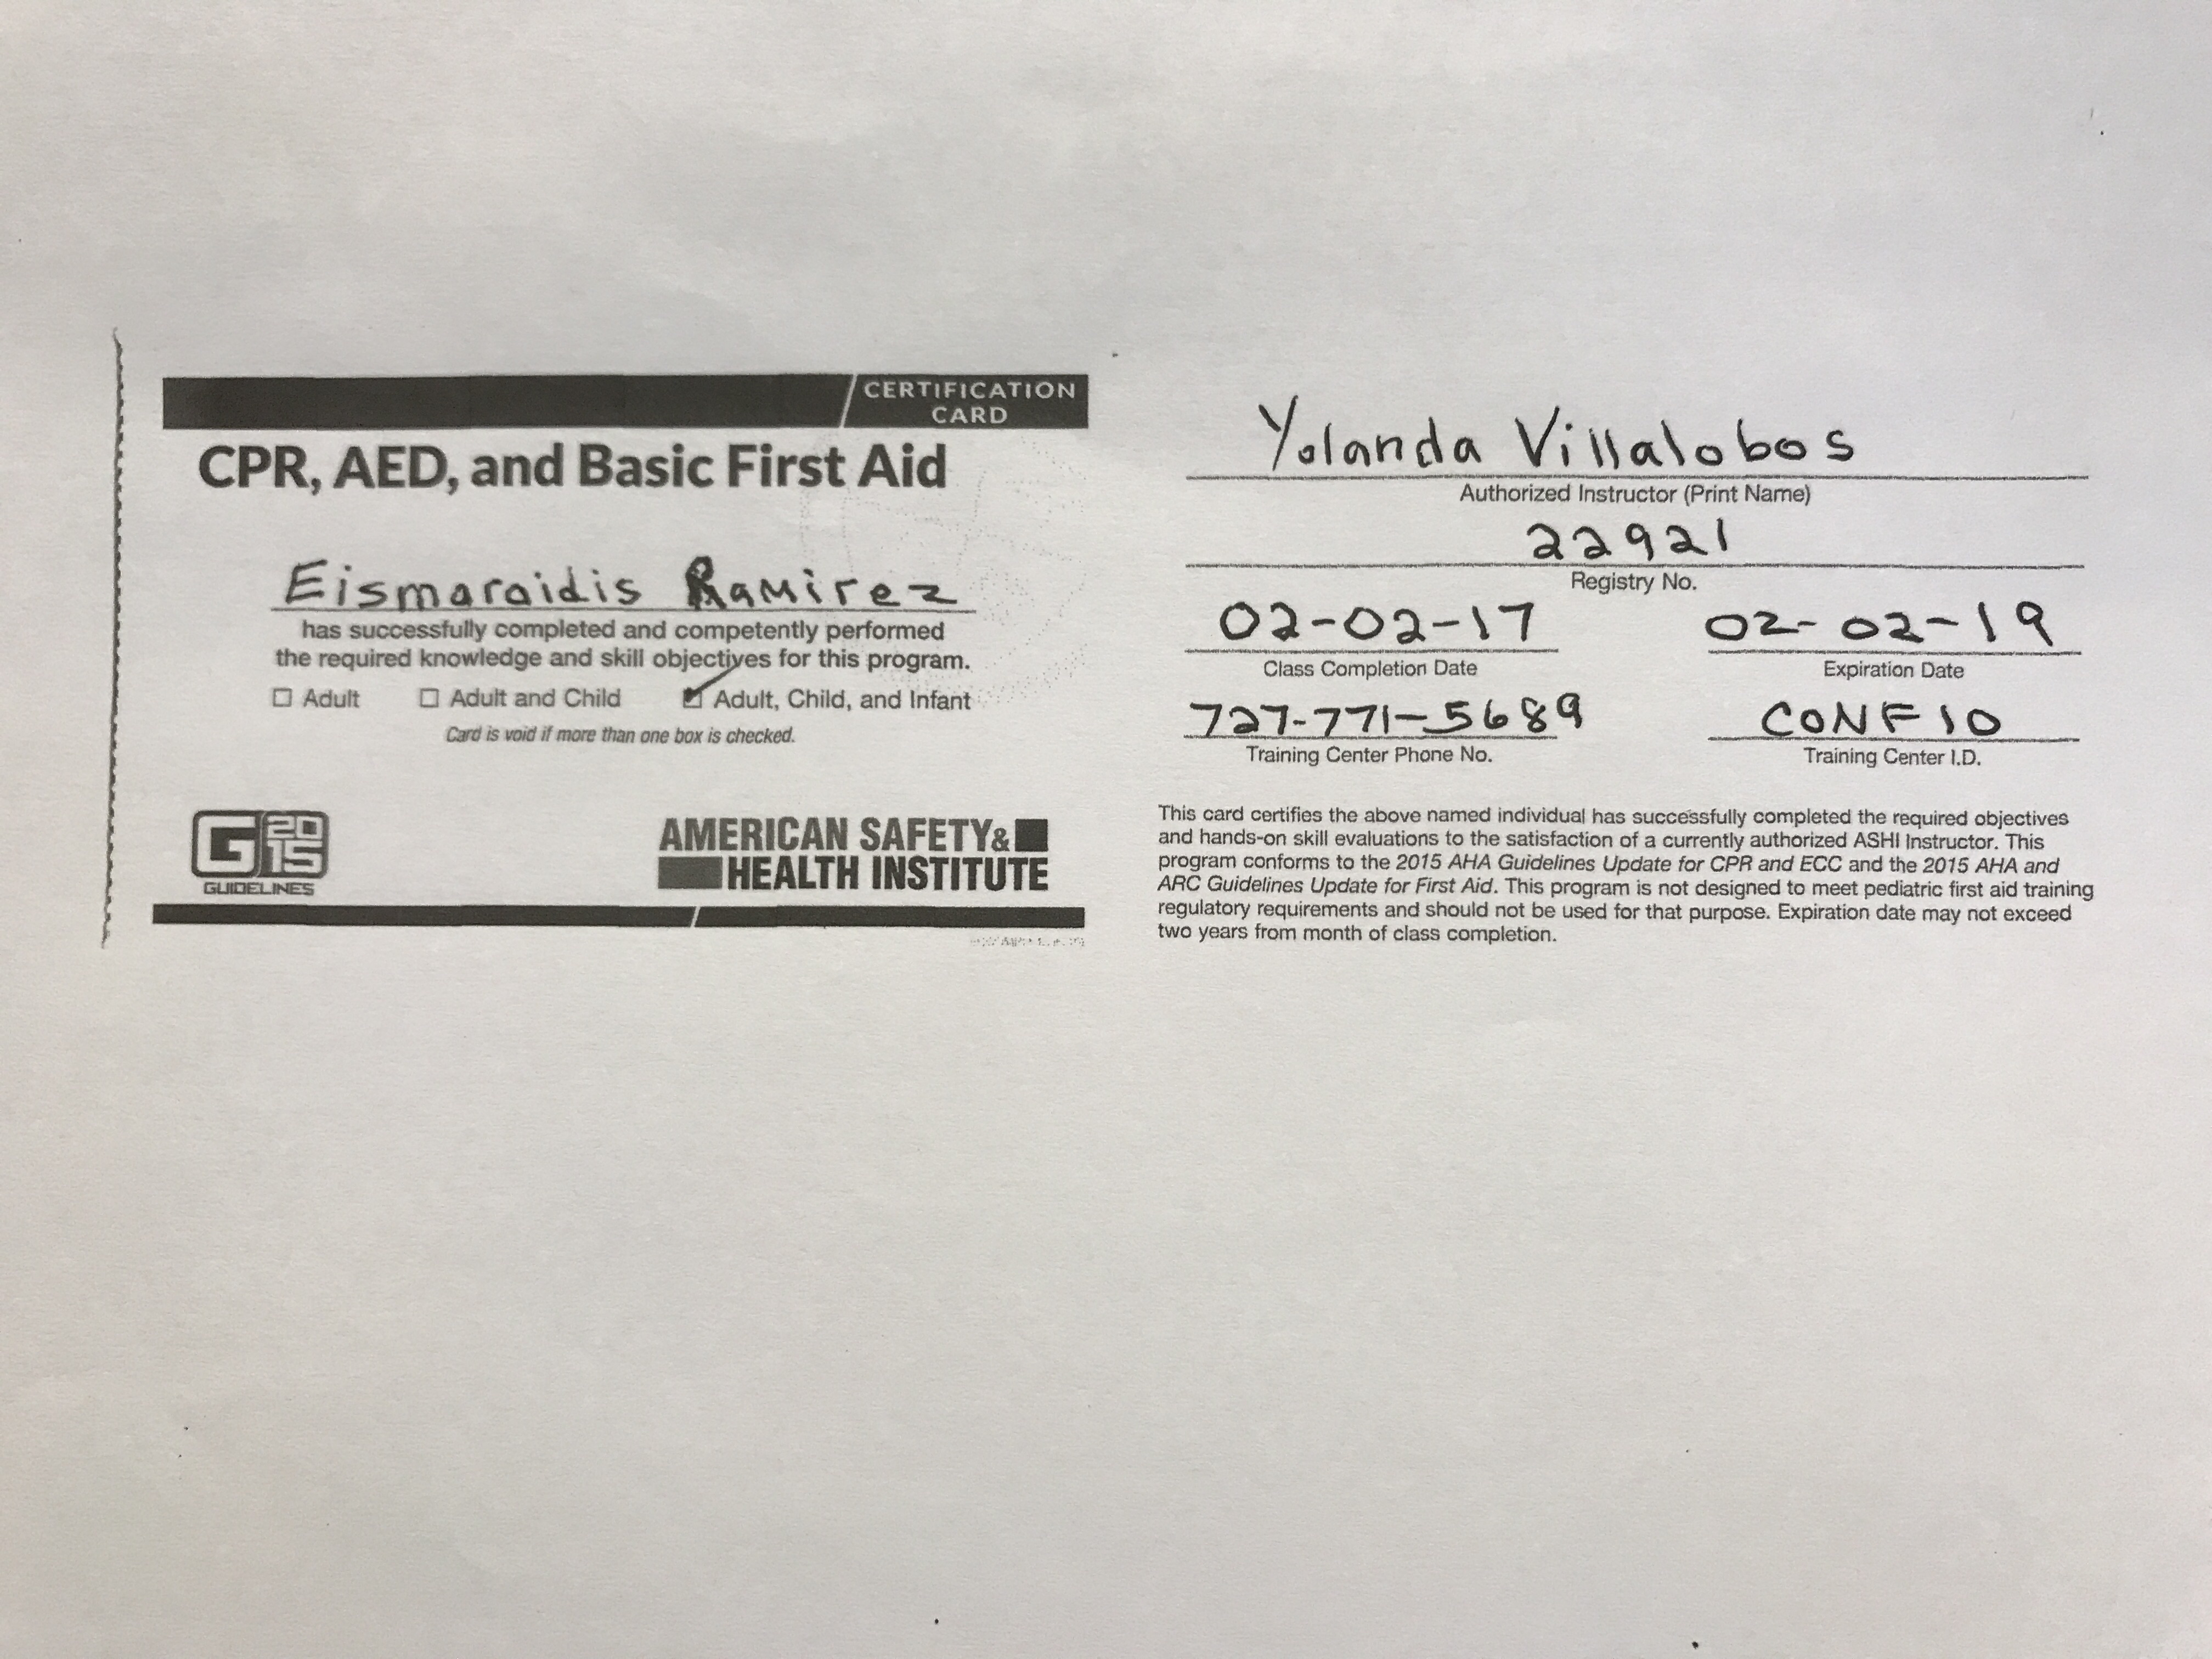 CERTIFICATION
CARD
CPR, AED, and Basic First Aid
Eismaraidis Ramirez
has successfully completed and competently performed
the required knowledge and skill objectives for this program.
☐ Adult ☐ Adult and Child ☑ Adult, Child, and Infant
Card is void if more than one box is checked.
G2015
GUIDELINES
AMERICAN SAFETY&
HEALTH INSTITUTE
Yolanda Villalobos
Authorized Instructor (Print Name)
22921
Registry No.
02-02-17 02-02-19
Class Completion Date Expiration Date
727-771-5689 CONF10
Training Center Phone No. Training Center I.D.
This card certifies the above named individual has successfully completed the required objectives
and hands-on skill evaluations to the satisfaction of a currently authorized ASHI Instructor. This
program conforms to the 2015 AHA Guidelines Update for CPR and ECC and the 2015 AHA and
ARC Guidelines Update for First Aid. This program is not designed to meet pediatric first aid training
regulatory requirements and should not be used for that purpose. Expiration date may not exceed
two years from month of class completion.